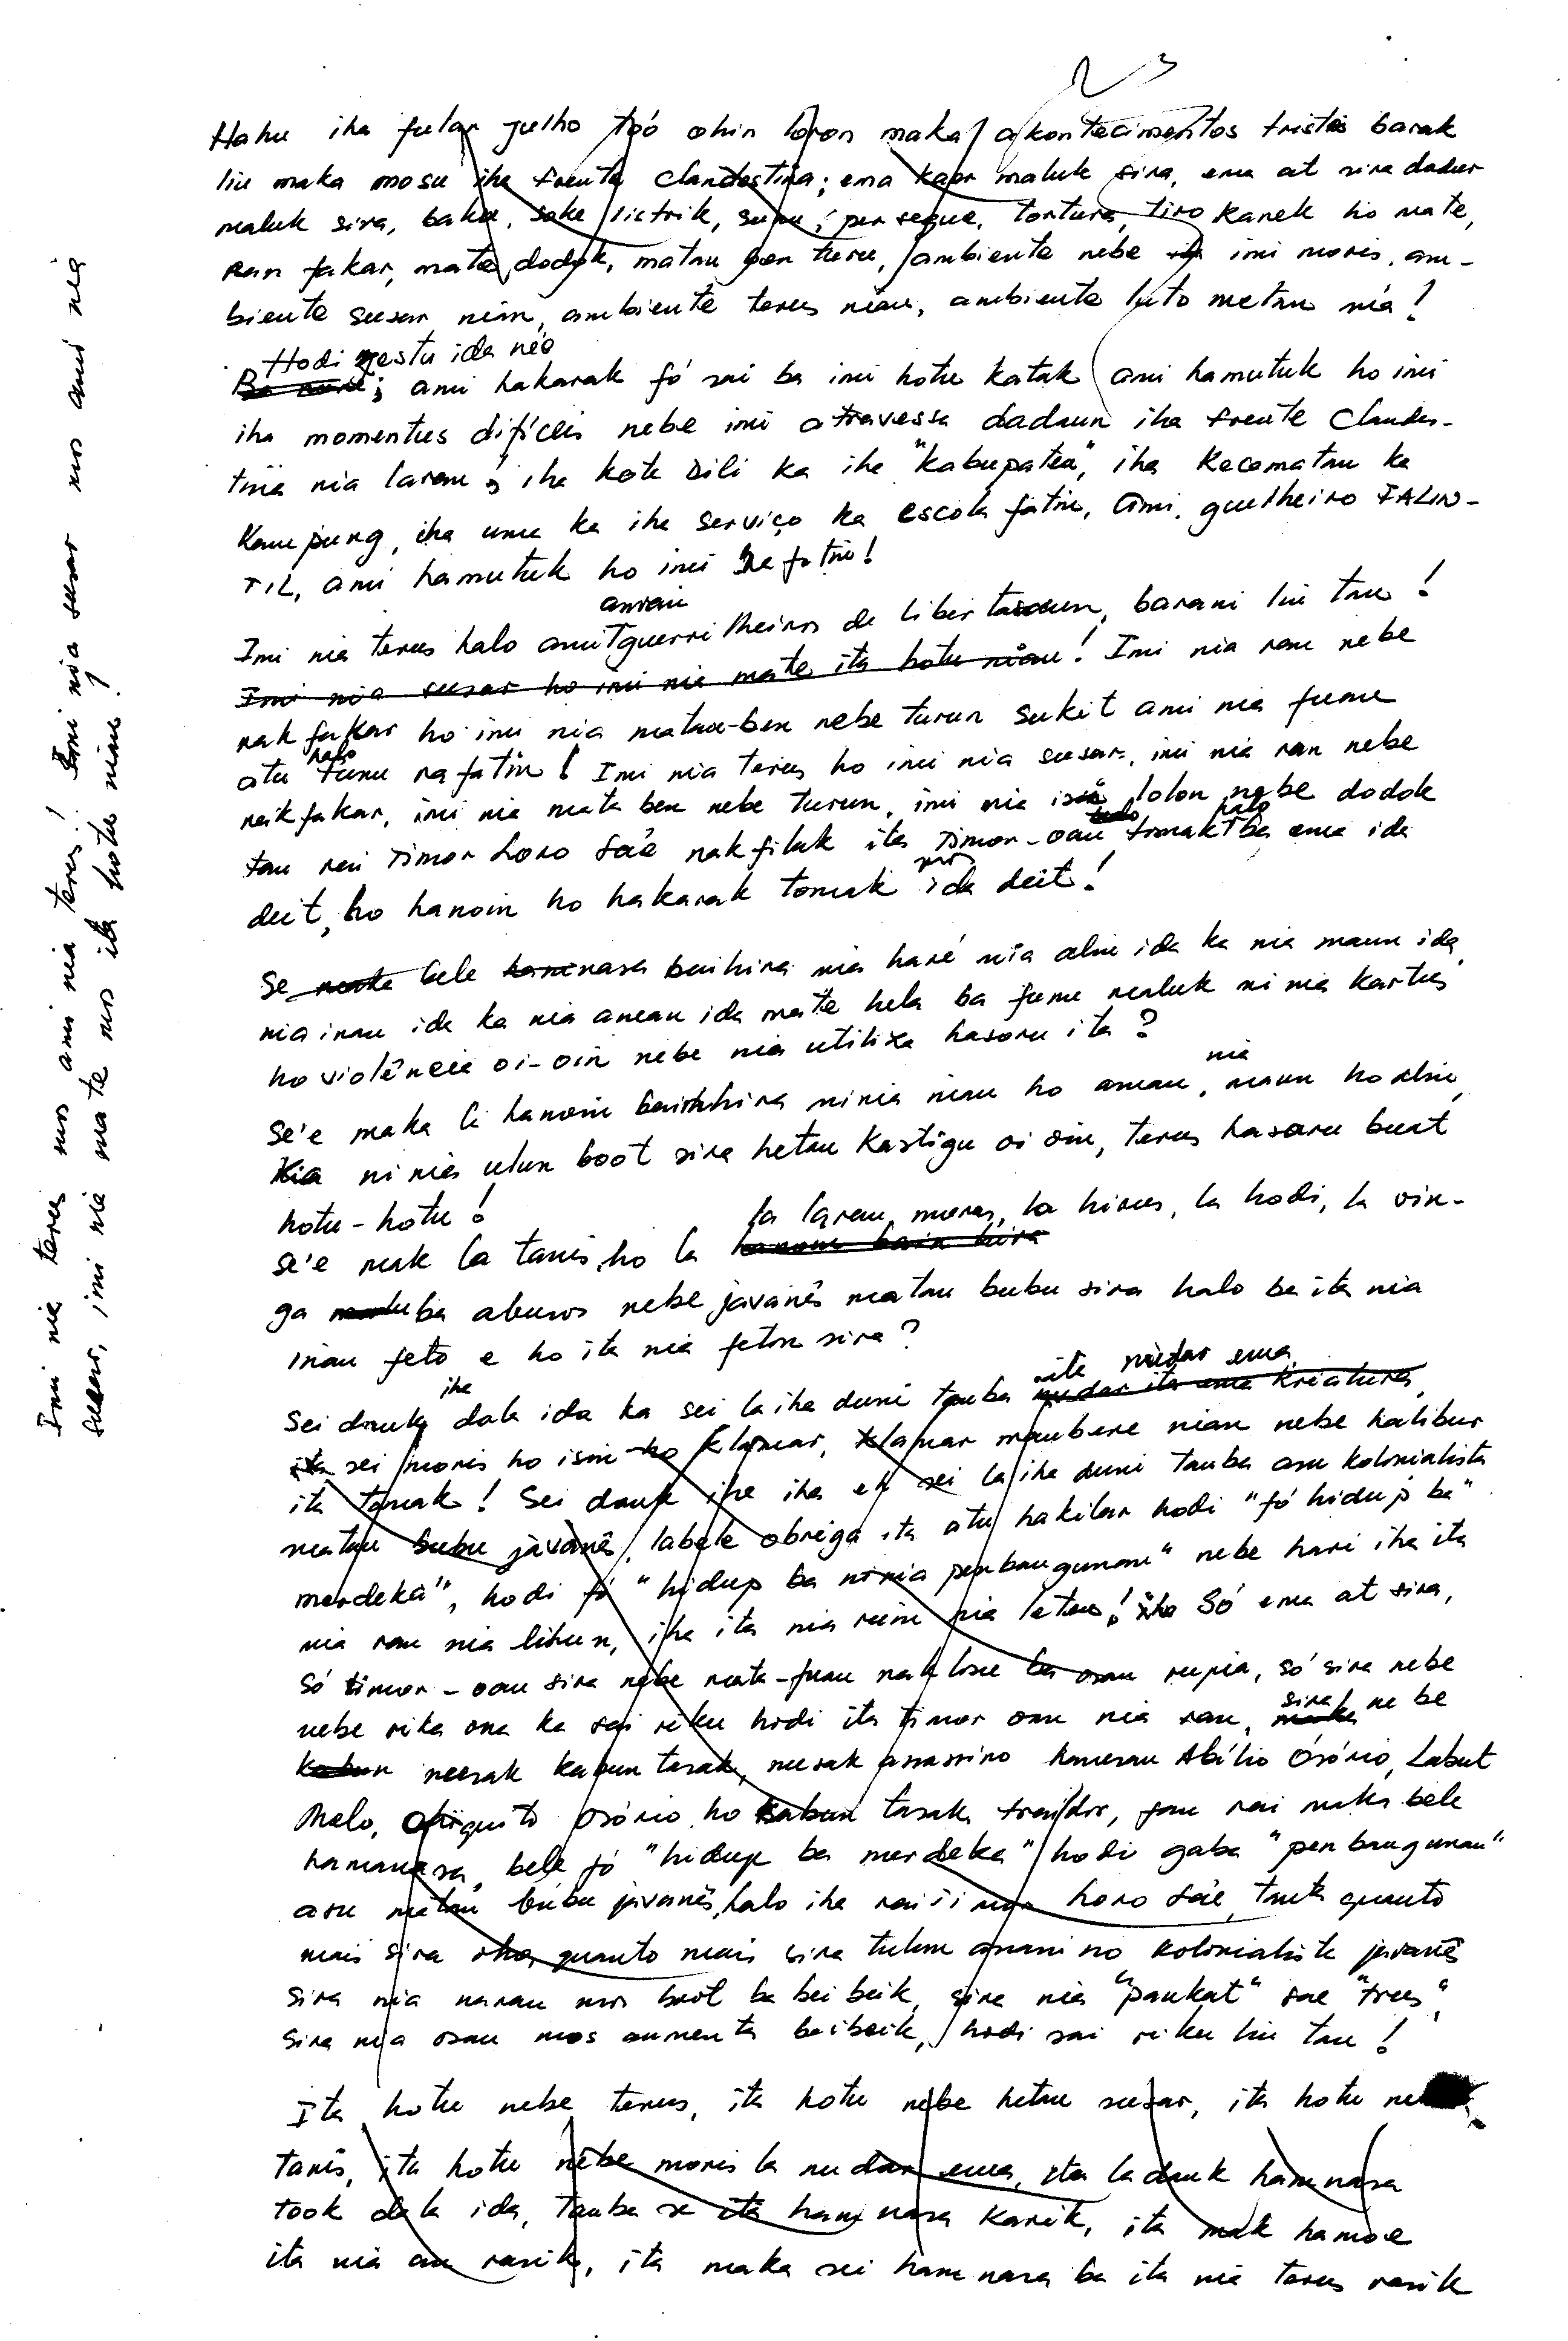 Hahu iha fulan Julho too ohin loron maka akontecimentos tristes barak
liu maka mosu iha frente clandestina; ema kaer maluk sira, ema at sira dadur
maluk sira, baku, soke lictrik, sunu, persegue, tortura, tiro kanek ho mate,
Ran fakar, mate dodok, matan ben turu, ambiente nebe imi moris, am-
biente susar nian, ambiente terus nian, ambiente luto metan nia!
Hodi gestu ida née
; ami hakarak fó sai ba imi hotu katak ami hamutuk ho imi
iha momentus difíceis nebe imi atravessa dadaun iha frente Clandes-
tina nia laran; iha kota Dili ka iha "kabupaten", iha Kecamatan ka
Kampung, iha uma ka iha serviço ka escola fatin, Ami, guelheiro FALIN-
TIL, ami hamutuk ho imi nafatin!
amian
Imi nia terus halo ami guerrilheiros de libertasaun, barani liu tan!
Imi nia susar ho imi nia mate ita hotu nian! Imi nia ran nebe
nakfakar ho imi nia matan-ben nebe turun sukit ami nia funu
halo
atu funu nafatin! Imi nia terus ho imi nia susar, imi nia ran nebe
nakfakar, imi nia mata ben nebe turun, imi nia isin lolon nebe dodok
halo
tan rai Timor Loro Sa'e nakfilak ita Timor-oan tomak ba ema ida
deit, ho hanoin ho hakarak tomak ida deit!
Se bele nasa bainhira nia haré nia alin ida ka nia maun ida,
nia inan ida ka nia aman ida mate hela ba funu maluk ni nia kartus
ho violência oi-oin nebe nia utiliza hasoru ita?
nia
Se'e maka la hanoin bainhira ninia inan ho aman, maun ho alin,
ni nia ulun boot sira hetan kastigu oi oin, terus hasoru buat
hotu-hotu!
la laran moras, la hirus, la hodi, la vin-
Se'e mak la tanis, ho la hanoin bain hira
ga ba abusos nebe javanês matan bubu sira halo ba ita nia
inan feto e ho ita nia feton sira?
iha ita nudar ema
Sei dauk dala ida ka sei la iha duni tanba nudar ita ema kriatura,
ita sei moris ho isin ho klamar, klamar maubere nian nebe halibur
ita tomak! Sei dauk iha iha ka sei la iha duni tanba asu kolonialista
matan bubu javanês, labele obriga ita atu hakilar hodi "fó hidup ba"
merdeka", hodi fó "hidup ba ninia penbangunan" nebe hari iha ita
nia ran nia lihun, iha ita nia ruin nia leten! Só ema at sira,
Só timor-oan sira nebe mata-fuan nakloke ba osan rupia, só sira nebe
sira
nebe rika ona ka sai riku hodi ita timor oan nia ran, maka nebe
neesak kabun tasak, neesak assassino hanesan Abílio Osório, Labut
Melo, Augusto Osório ho kabun tasak traidor, fan rai maka bele
hamanasa, bele fó "hidup ba merdeka" hodi gaba "penbangunan"
asu matan bubu javanês, halo iha rai timor Loro Sa'e, tanto quanto
mais sira quanto mais sira tulun assassino kolonialista javanês
sira nia naran mos boot ba bei beik, sira nia "pankat" sae "trus",
sira nia osan mos aumenta beibeik, hodi sai riku liu tan!
Ita hotu nebe terus, ita hotu nebe hetan susar, ita hotu
tanis, ita hotu nebe moris la nudar ema, ita ladauk hamnasa
took dala ida, tanba se ita hamnasa karik, ita mak hamoe
ita nia an rasik, ita maka sei hamnasa ba ita nia terus rasik
Imi nia terus mos ami nia terus! Imi nia susar mos ami nia
susar, imi nia mate mos ita hotu nian!